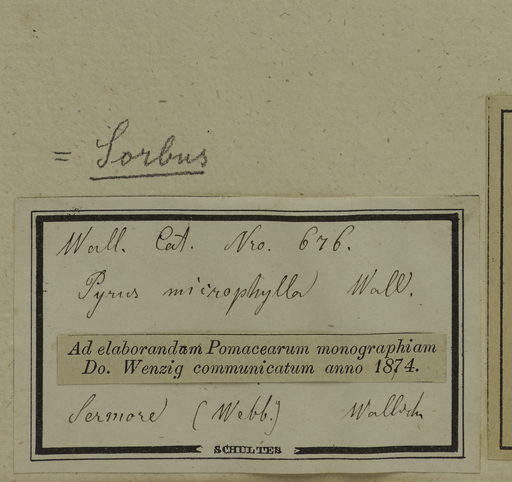 = Sorbus
Wall. Cat. Nro. 676.
Pyrus microphylla Wall.
Ad elaborandam Pomacearum monographiam
Do. Wenzig communicatum anno 1874.
Sermore (Webb.) Wallich
SCHULTES